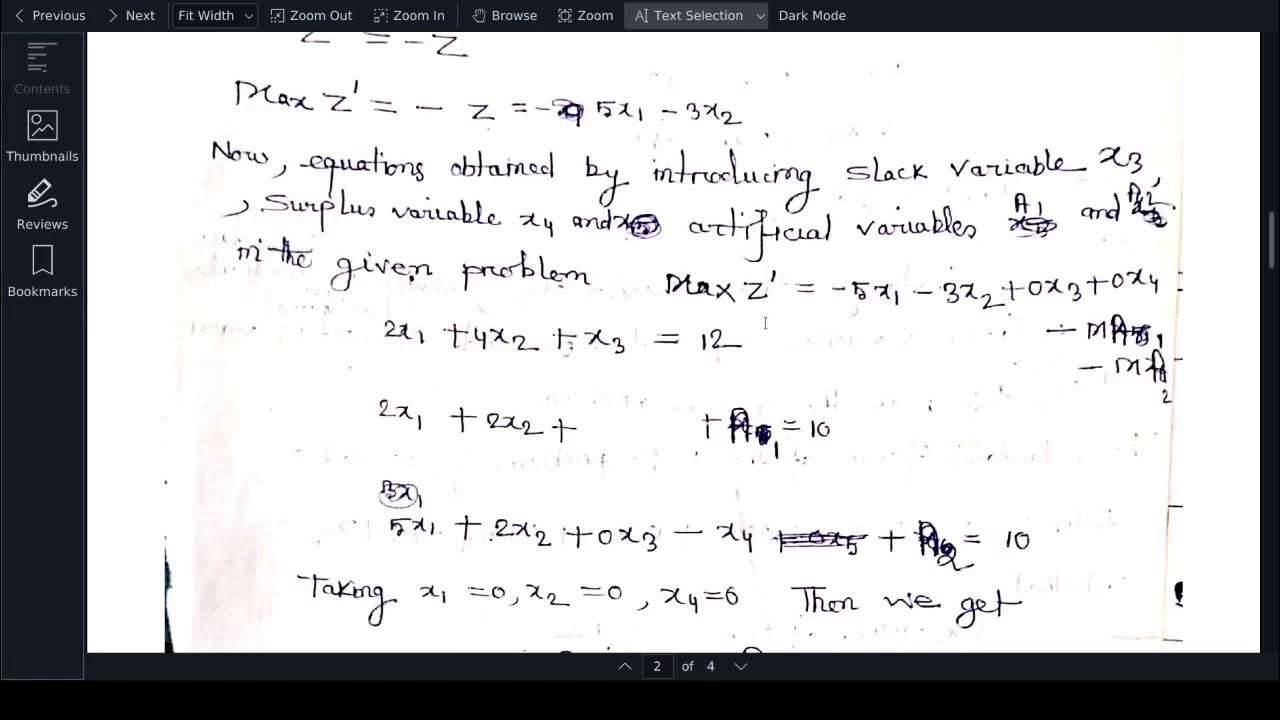 Previous Next Fit Width Zoom Out Zoom In Browse Zoom Text Selection Dark Mode
Contents
Thumbnails
Reviews
Bookmarks
Z' = - Z
Max Z' = - Z = - 5x₁ - 3x₂
Now, equations obtained by introducing slack variable x₃,
, Surplus variable x₄ and artificial variables A₁ and A₂.
in the given problem Max Z' = -5x₁ - 3x₂ + 0x₃ + 0x₄
2x₁ + 4x₂ + x₃ = 12 - MA₁
- MA₂
2x₁ + 2x₂ + + A₁ = 10
5x₁ + 2x₂ + 0x₃ - x₄ + A₂ = 10
Taking x₁ = 0, x₂ = 0, x₄ = 0 Then we get
2 of 4